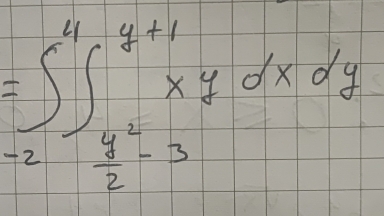 = ∫_{-2}^{4} ∫_{y²/2 - 3}^{y+1} x y dx dy